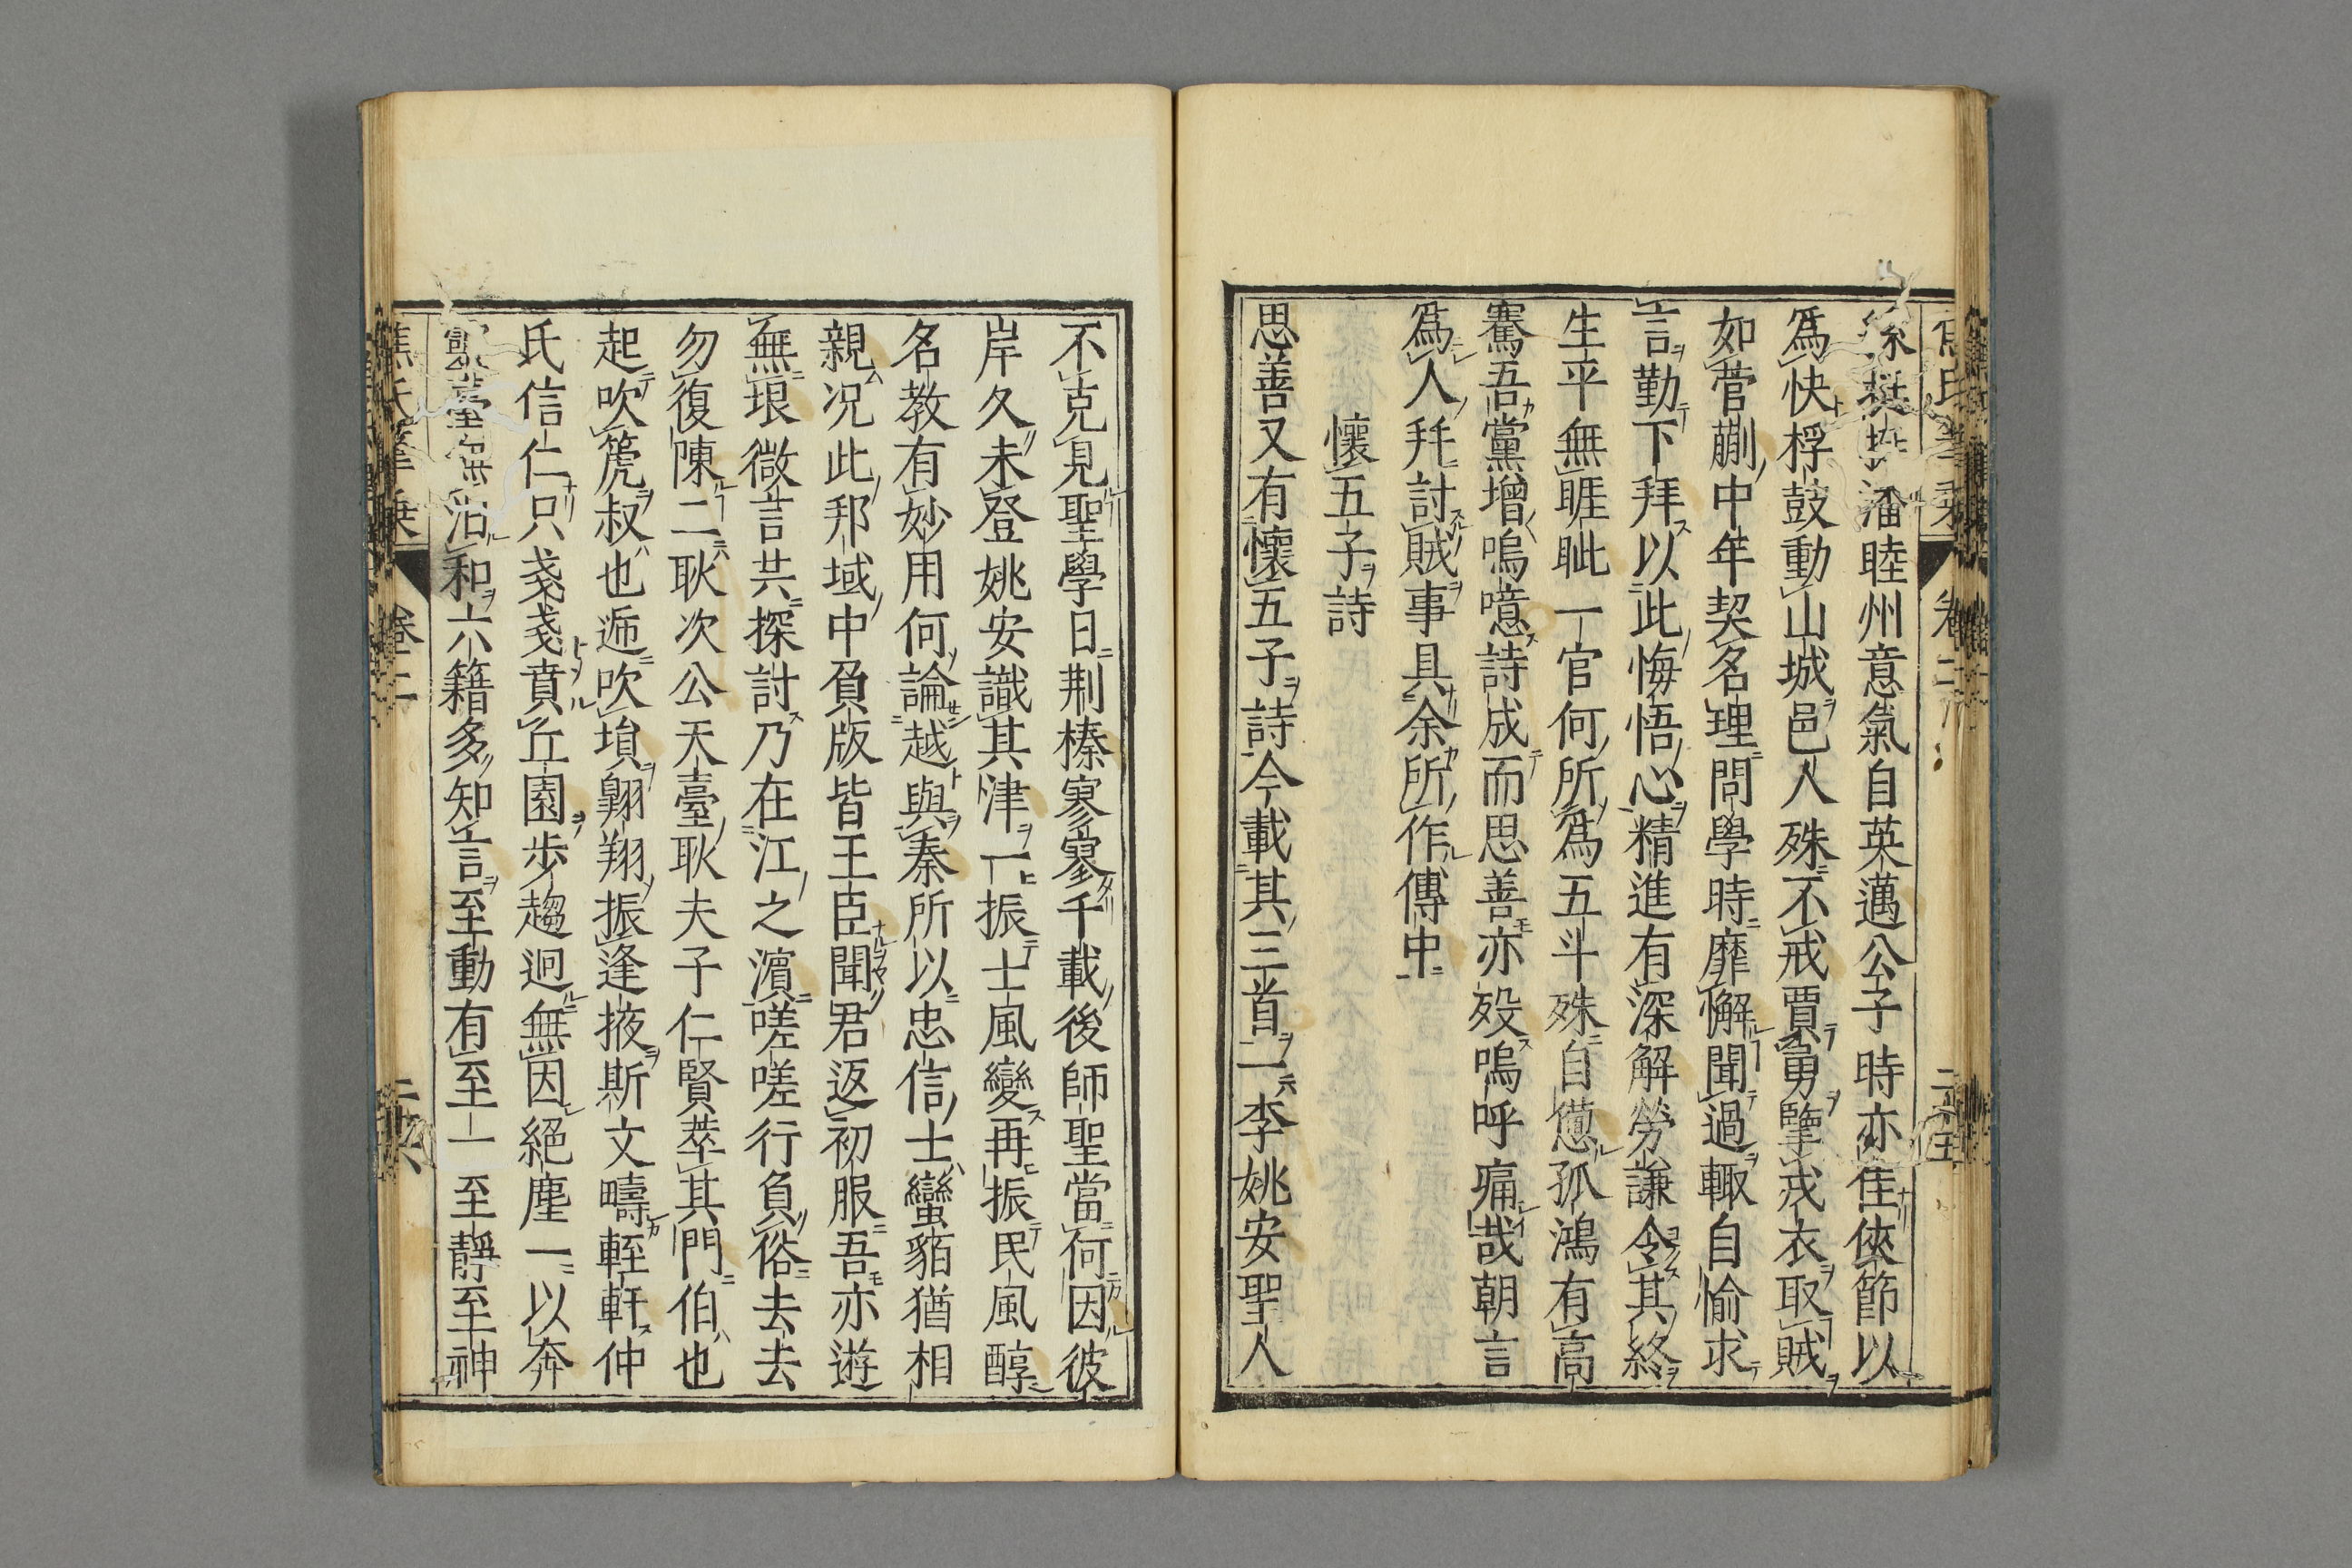 焦氏筆乗 卷二 二十五
潘睦州意氣自英邁公子時亦隹俠節以
爲快桴鼓動山城邑人殊不戒賈勇擐戎衣取賊
如菅蒯中年契名理問學時靡懈聞過輙自愉求
言勤下拜以此悔悟心精進有深解勞謙令其終
生平無睚眦一官何所爲五斗殊自憊孤鴻有高
騫吾黨增嗚噫詩成而思善亦歿嗚呼痛哉朝言
爲人拜討賊事具余所作傳中
懷五子詩
思善又有懷五子詩今載其三首一李姚安聖人
不克見聖學日荆榛寥寥千載後師聖當何因彼
岸久未登姚安識其津一振士風變再振民風醇
名教有妙用何論越與秦所以忠信士蠻貊猶相
親况此邦域中負版皆王臣聞君返初服吾亦遊
無垠微言共探討乃在江之濵嗟嗟行負俗去去
勿復陳二耿次公天臺耿夫子仁賢萃其門伯也
起吹篪叔也逓吹塤翺翔振逢掖斯文疇輊軒仲
氏信仁只戔戔賁丘園歩趨迥無因絕塵一以奔
靈臺無滔和六籍多知言至動有至一至靜至神
焦氏筆乗 卷二 二十六